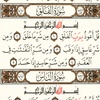 سُورَةُ الْفَلَقِ
بِسْمِ اللَّهِ الرَّحْمَٰنِ الرَّحِيمِ
قُلْ أَعُوذُ بِرَبِّ الْفَلَقِ مِن شَرِّ مَا خَلَقَ وَمِن
شَرِّ غَاسِقٍ إِذَا وَقَبَ وَمِن شَرِّ النَّفَّاثَاتِ
فِي الْعُقَدِ وَمِن شَرِّ حَاسِدٍ إِذَا حَسَدَ
سُورَةُ النَّاسِ
بِسْمِ اللَّهِ الرَّحْمَٰنِ الرَّحِيمِ